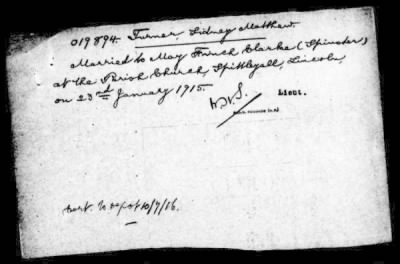 019894. Turner, Sidney Matthew
Married to May French Clarke (Spinster)
at the Parish Church, Spittlegall, Lincoln,
on 23rd January 1915.
Lieut.
Cert. to depot 10/7/16.